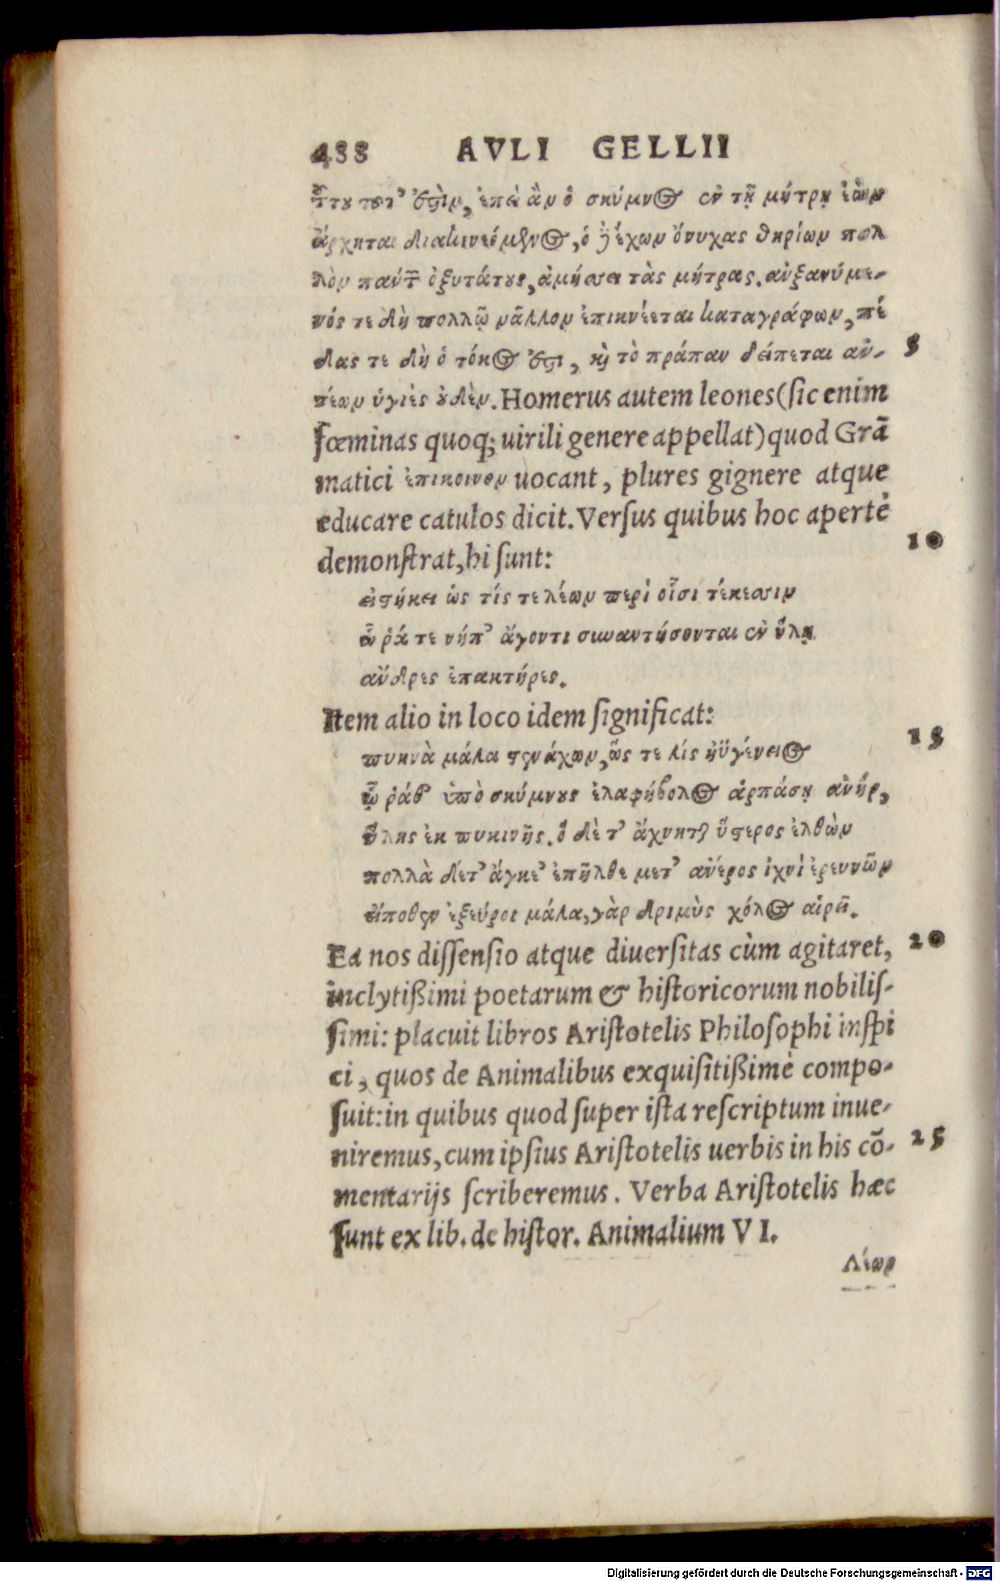 488 AVLI GELLII
τουτοι' ἐστὶν, ἐπεὰν ὁ σκύμνος ἐν τῇ μήτρῃ ἐὼν
ἄρχηται διακινεόμενος, ὁ ἔχων ὄνυχας θηρίων πολ
λὸν πάντων ὀξυτάτους, ἀμύσει τὰς μήτρας. αὐξανόμε-
νός τε δὴ πολλῷ μᾶλλον ἐπικνέεται καταγράφων, πέ
λας τε δὴ ὁ τόκος ἐστι, καὶ τὸ πράπαν λείπεται αὐ- 5
τέων ὑγιὲς οὐδὲν. Homerus autem leones (sic enim
fœminas quoq; uirili genere appellat) quod Grā
matici ἐπίκοινον uocant, plures gignere atque
educare catulos dicit. Versus quibus hoc apertè
demonstrat, hi sunt: 10
εἱστήκει ὡς τίς τε λέων περὶ οἷσι τέκεσσιν
ᾧ ῥά τε νήπι' ἄγοντι συναντήσονται ἐν ὕλῃ
ἄνδρες ἐπακτήρες.
Item alio in loco idem significat:
πυκνὰ μάλα στενάχων, ὥς τε λὶς ἠϋγένειος 15
ᾧ ῥάθ' ὑπὸ σκύμνους ἐλαφήβολος ἁρπάσῃ ἀνὴρ,
ὕλης ἐκ πυκινῆς. ὁ δὲ τ' ἄχνηται ὕστερος ἐλθὼν
πολλὰ δέ τ' ἄγκε' ἐπῆλθε μετ' ἀνέρος ἰχνὶ ἐρευνῶν
εἴποθεν ἐξεύροι μάλα, γὰρ δριμὺς χόλος αἱρεῖ.
Ea nos dissensio atque diuersitas cùm agitaret, 20
inclytißimi poetarum & historicorum nobilis-
simi: placuit libros Aristotelis Philosophi inspi
ci, quos de Animalibus exquisitißimè compo-
suit: in quibus quod super ista rescriptum inue-
niremus, cum ipsius Aristotelis uerbis in his cō- 25
mentarijs scriberemus. Verba Aristotelis hæc
sunt ex lib. de histor. Animalium VI.
Λέων
Digitalisierung gefördert durch die Deutsche Forschungsgemeinschaft - DFG